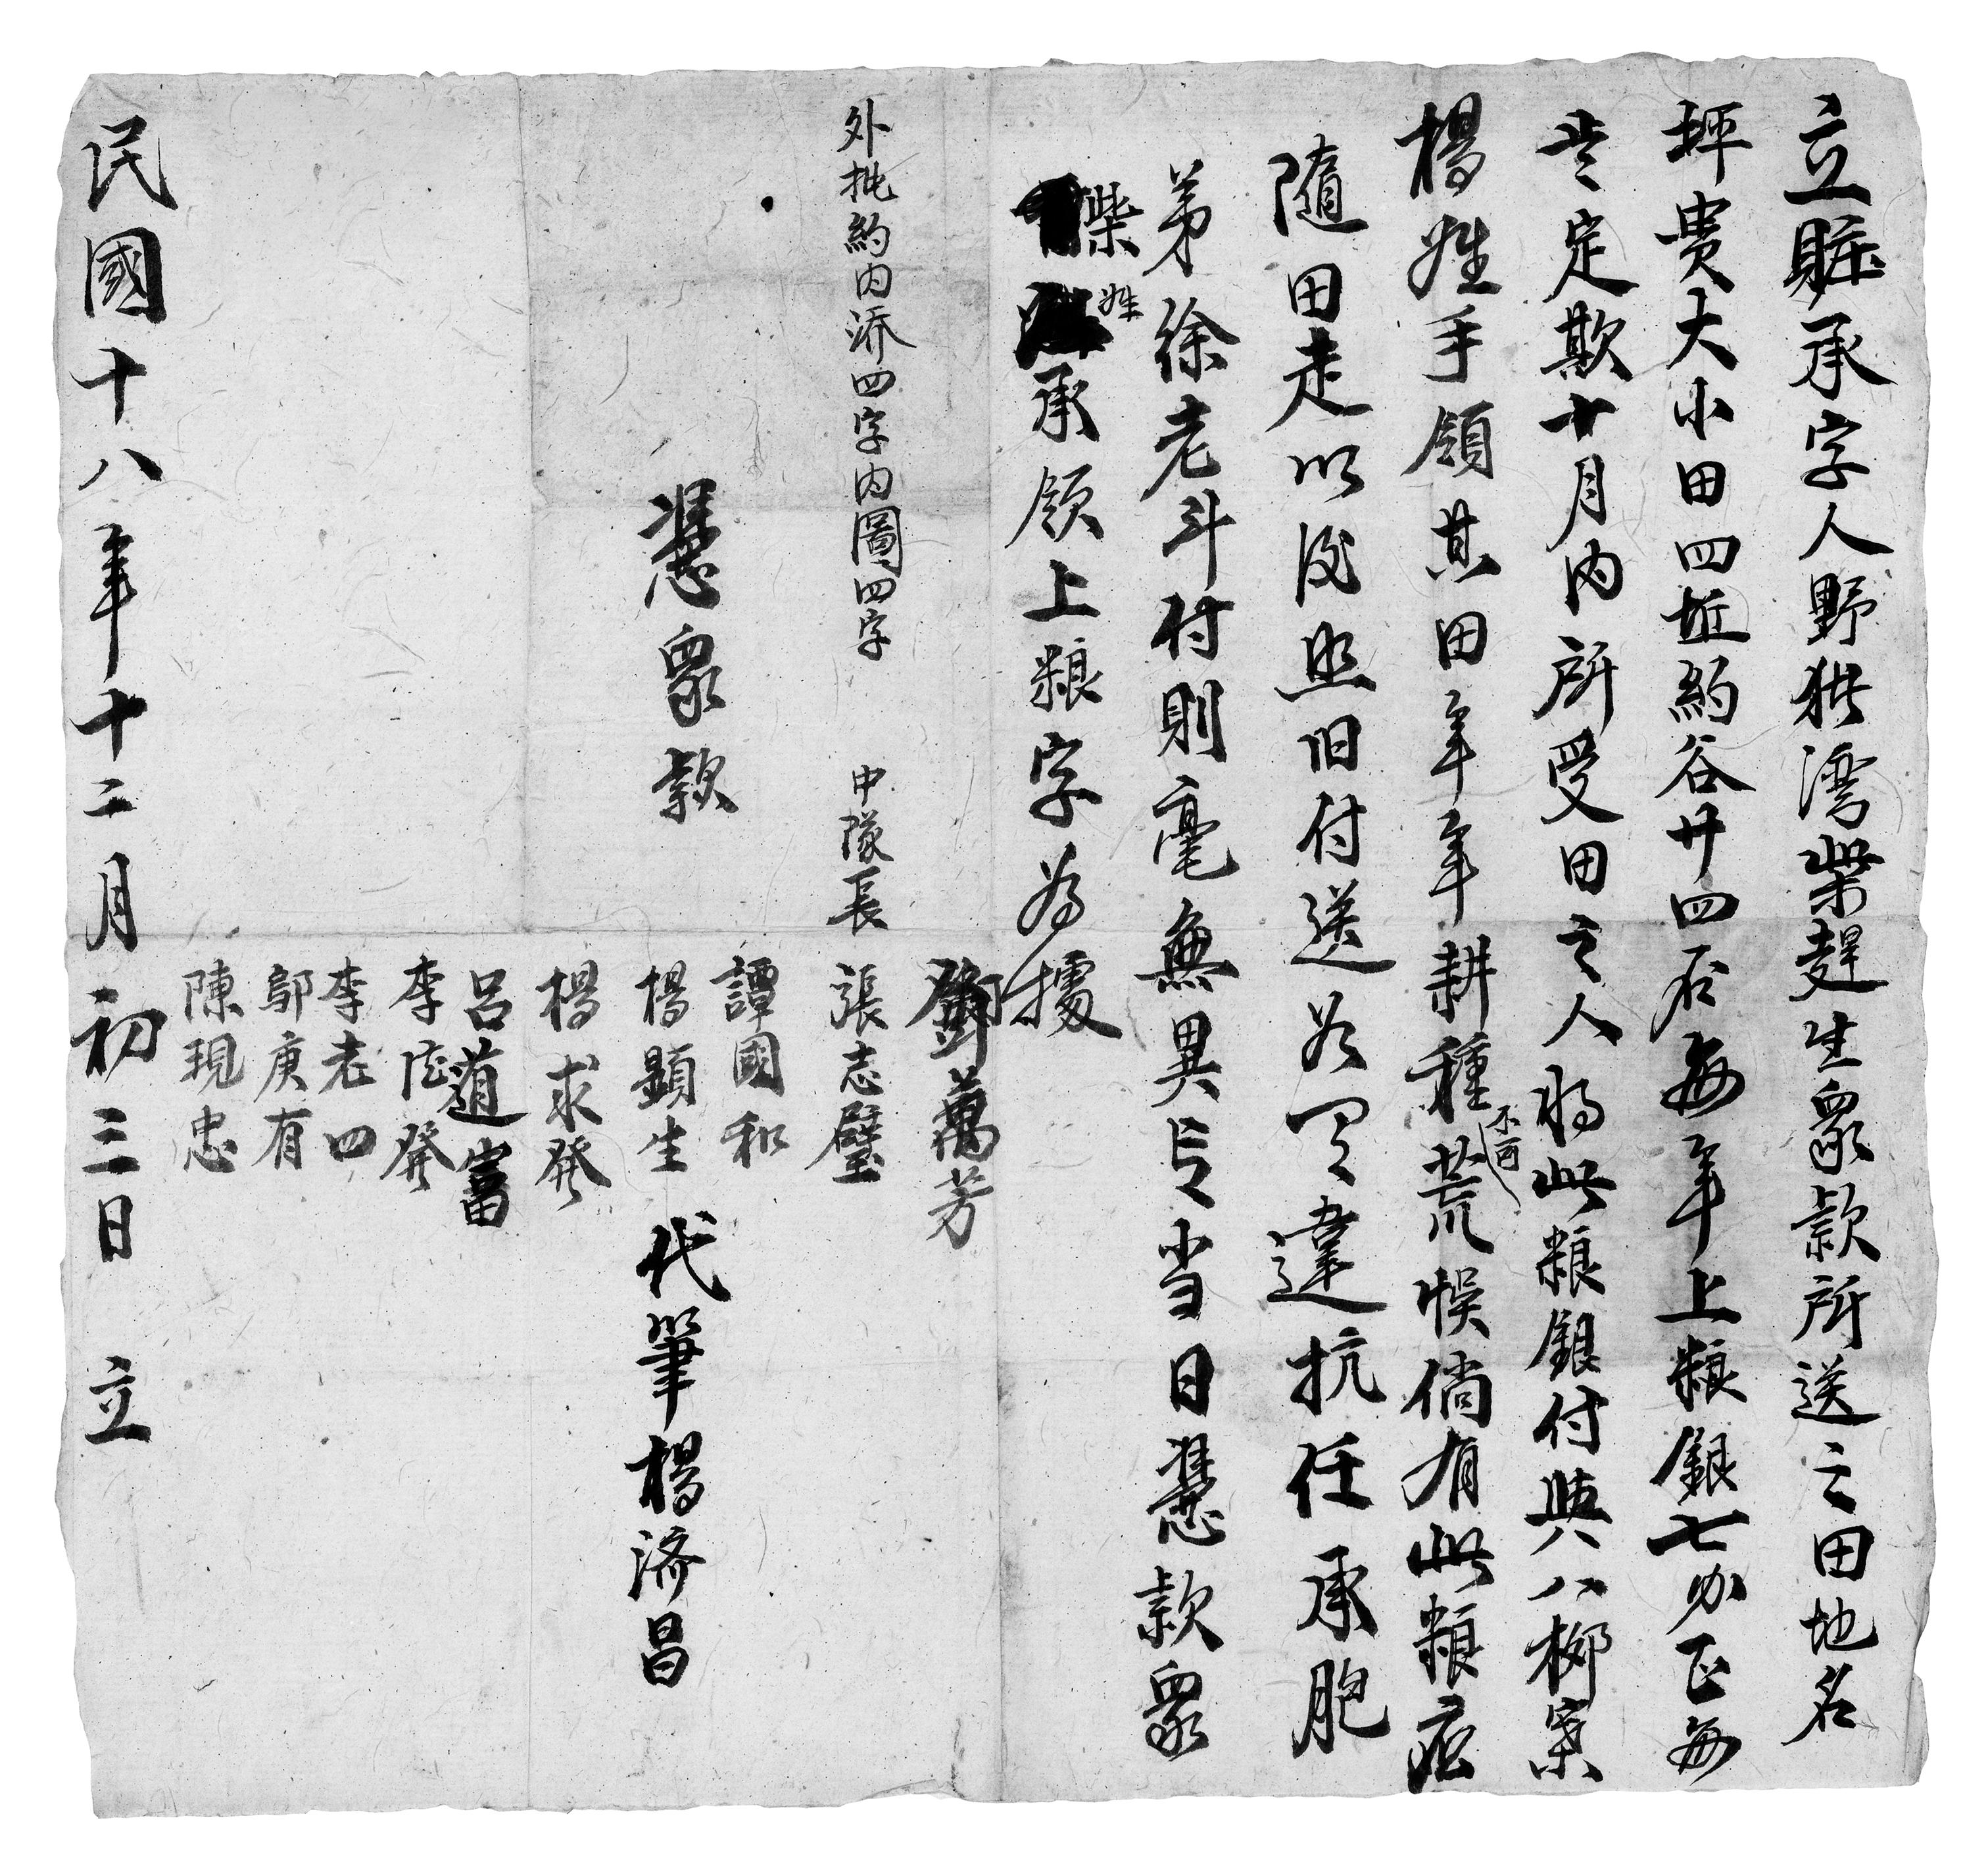 立賍承字人野狹湾柴趕生衆款所送之田地名
坪贵大小田四坵約谷廿四石每年上粮銀七分正每
定欺十月内所受田之人将此粮銀付與八柳寨
楊姓手領其田年年耕種不可荒悮倘有此粮應
隨田走以後照旧付送若違抗任承胞
弟徐老斗付則毫無異言当日憑款衆
柴姓承领上粮字為據
外批約内添四字内圖四字
憑衆款
中隊長
鄧萬芳
張志璧
譚國和
楊顕生
楊求發
呂道富
李德發
李老四
鄔庚有
陳現忠
代筆楊济昌
民國十八年十二月初三日 立